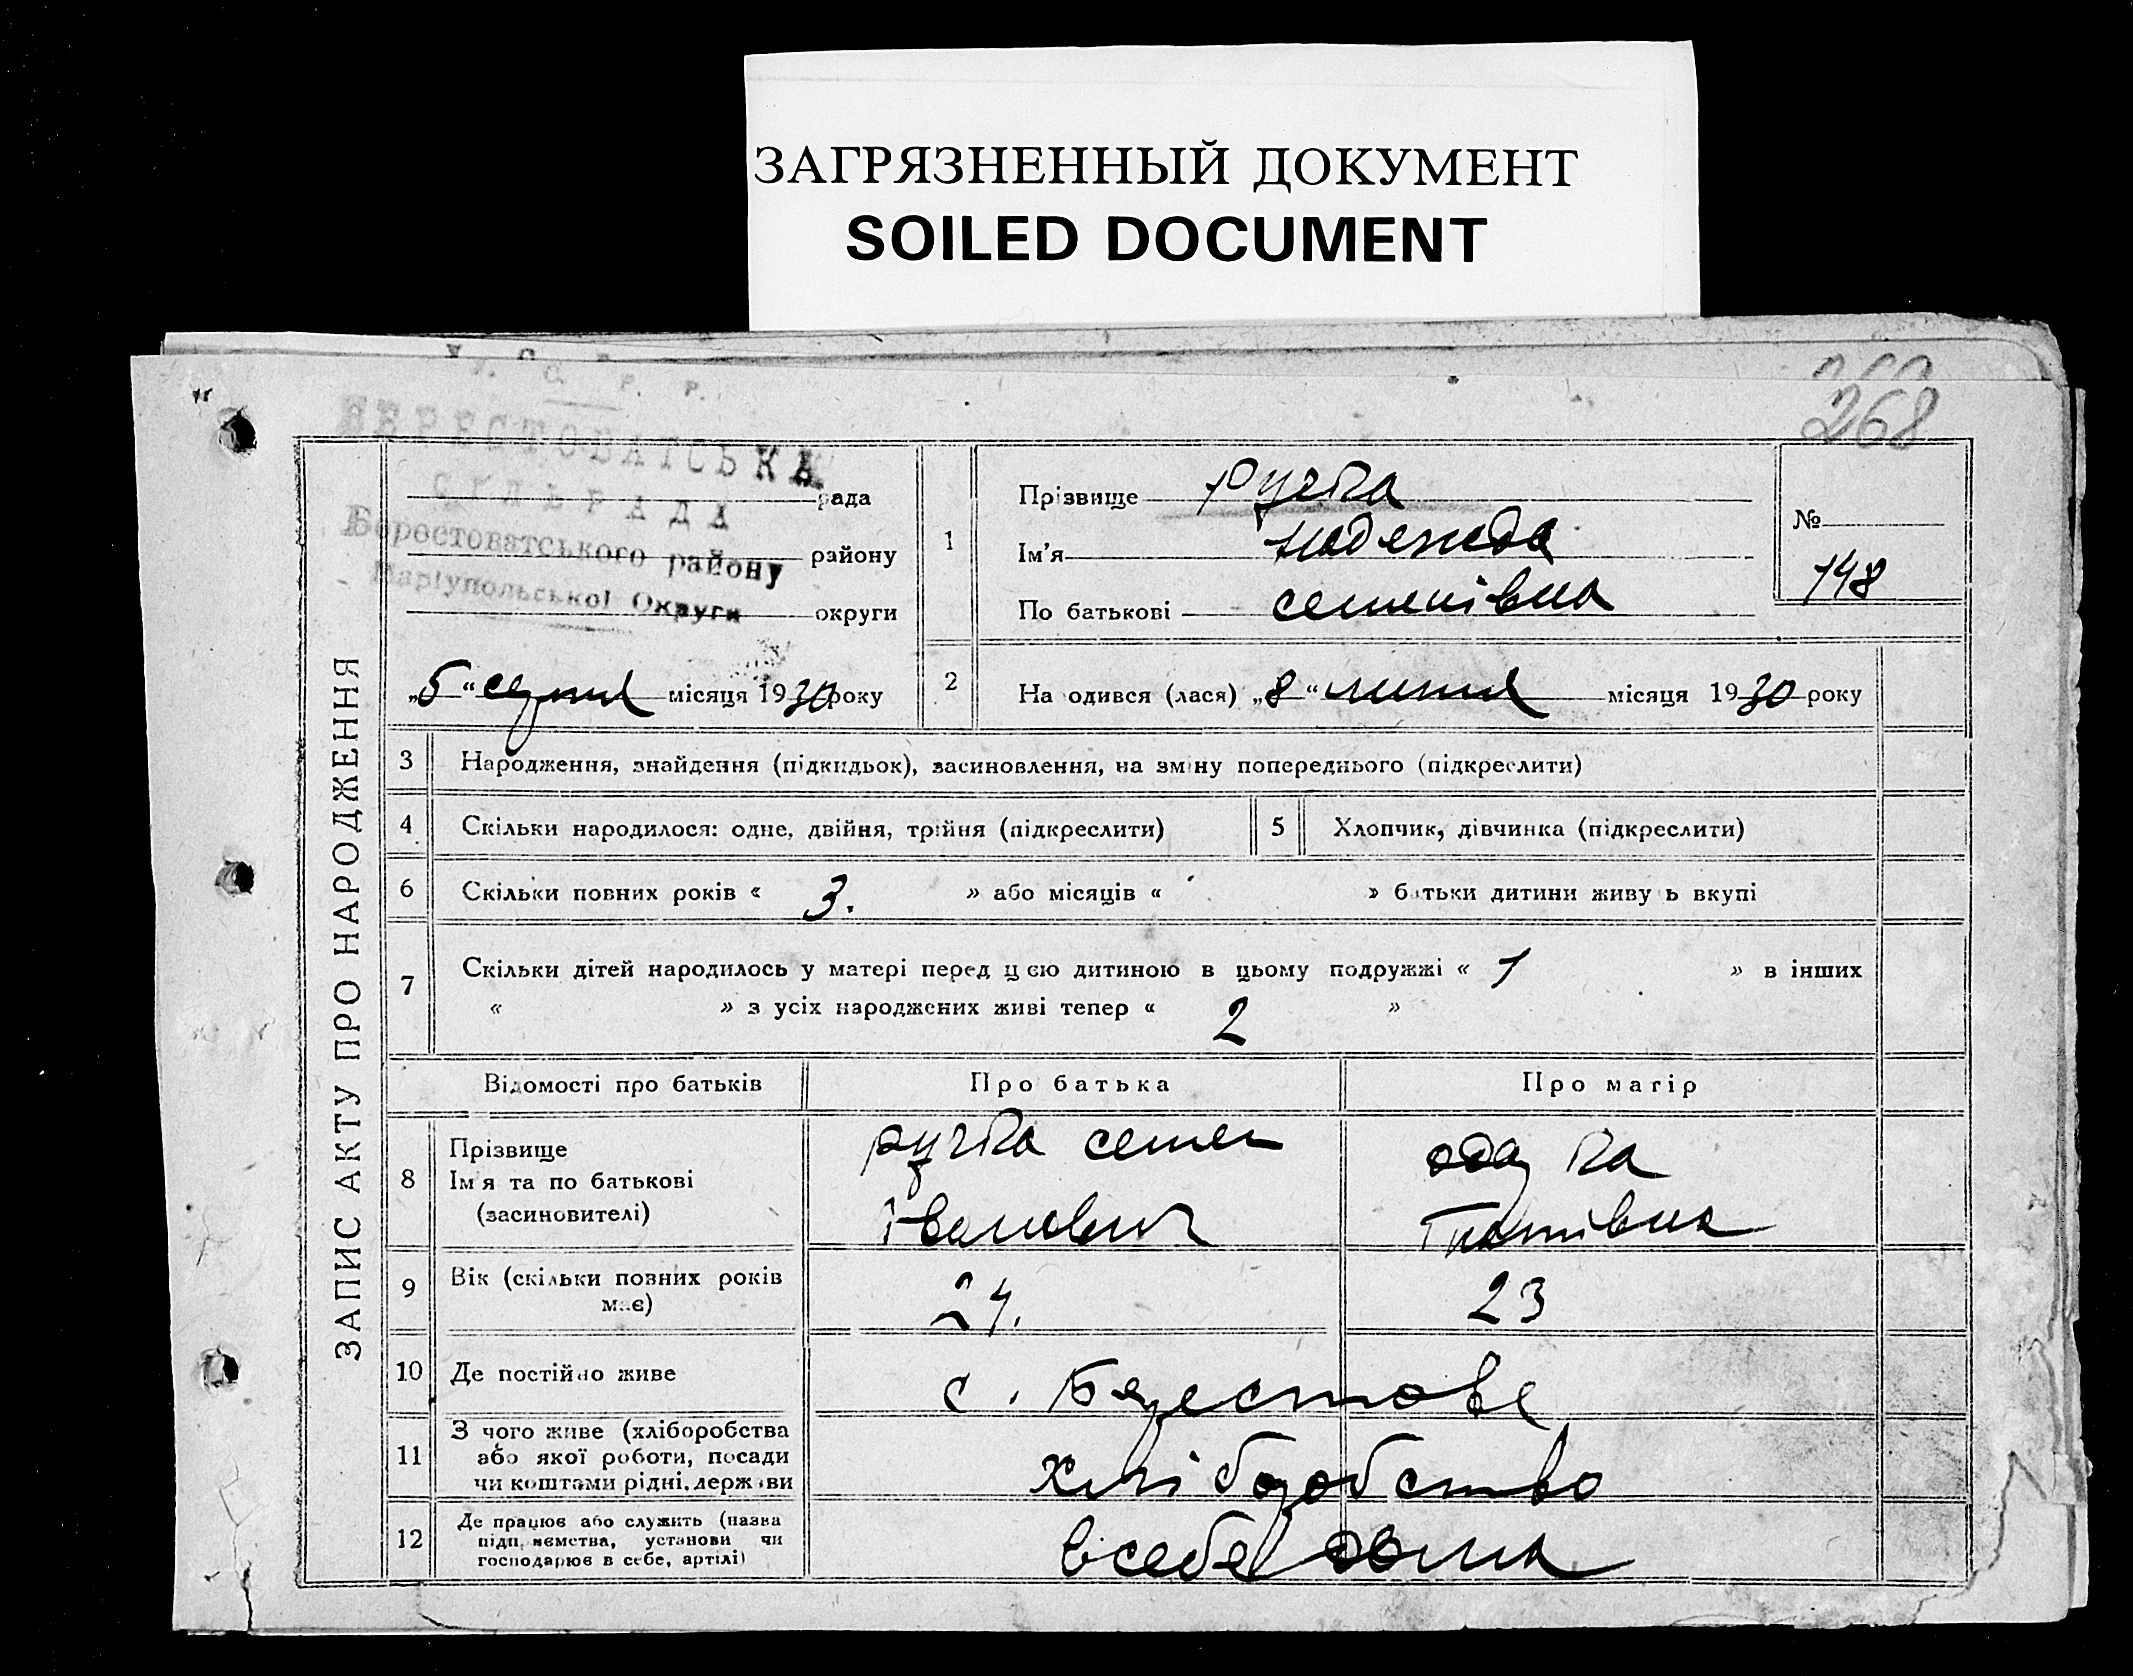 ЗАГРЯЗНЕННЫЙ ДОКУМЕНТ
SOILED DOCUMENT
268
У. С. Р. Р.
БЕРЕСТОВАТСЬКА
СІЛЬРАДА рада
Берестоватського району району
Маріупольської Округи округи
„5“ серпня місяця 1930 року
ЗАПИС АКТУ ПРО НАРОДЖЕННЯ
1 Прізвище Ручка
Ім'я Надежда
По батькові Семенівна
№ 148
2 На одився (лася) „8“ липня місяця 1930 року
3 Народження, знайдення (підкидьок), засиновлення, на зміну попереднього (підкреслити)
4 Скільки народилося: одне, двійня, трійня (підкреслити)
5 Хлопчик, дівчинка (підкреслити)
6 Скільки повних років « 3. » або місяців « » батьки дитини живу ь вкупі
7 Скільки дітей народилось у матері перед цією дитиною в цьому подружжі « 1 » в інших
« » з усіх народжених живі тепер « 2 »
Відомості про батьків Про батька Про матір
8 Прізвище
Ім'я та по батькові
(засиновителі)
Ручка Семен
Іванович
Одарка
Гнатівна
9 Вік (скільки повних років
має)
24. 23
10 Де постійно живе с. Берестове
11 З чого живе (хліборобства
або якої роботи, посади
чи коштами рідні, держави
хліборобство
12 Де працює або служить (назва
підприємства, установи чи
господарює в себе, артілі)
в себе дома